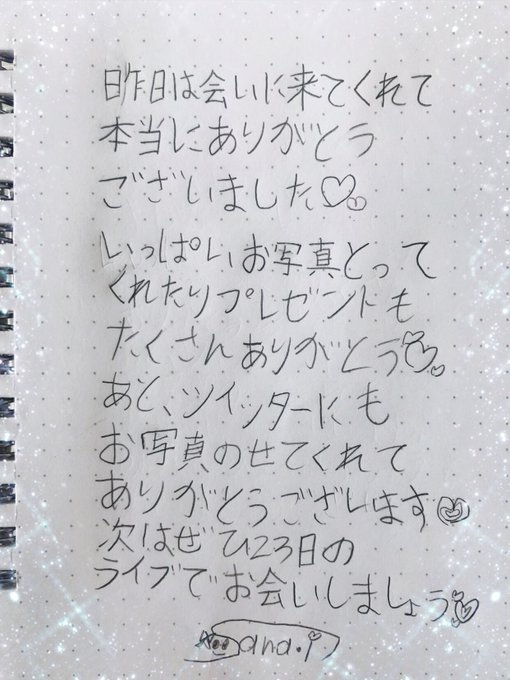 昨日は会いに来てくれて
本当にありがとう
ございました♡
いっぱいお写真とって
くれたりプレゼントも
たくさんありがとう♡
あと、ツイッターにも
お写真のせてくれて
ありがとうございます♡
次はぜひ23日の
ライブでお会いしましょう♡